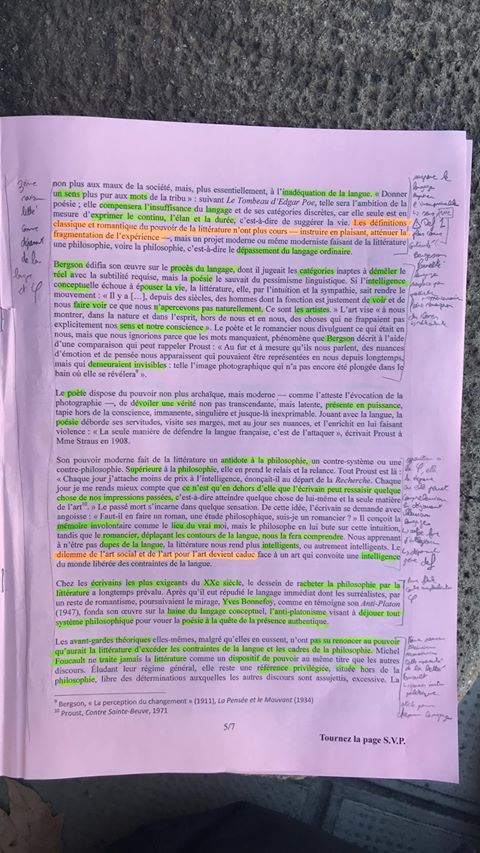 non plus aux maux de la société, mais, plus essentiellement, à l'inadéquation de la langue. « Donner
un sens plus pur aux mots de la tribu » : suivant Le Tombeau d'Edgar Poe, telle sera l'ambition de la
poésie ; elle compensera l'insuffisance du langage et de ses catégories discrètes, car elle seule est en
mesure d'exprimer le continu, l'élan et la durée, c'est-à-dire de suggérer la vie. Les définitions
classique et romantique du pouvoir de la littérature n'ont plus cours — instruire en plaisant, atténuer la
fragmentation de l'expérience —, mais un projet moderne ou même moderniste faisant de la littérature
une philosophie, voire la philosophie, c'est-à-dire le dépassement du langage ordinaire.
Bergson édifia son œuvre sur le procès du langage, dont il jugeait les catégories inaptes à démêler le
réel avec la subtilité requise, mais la poésie le sauvait du pessimisme linguistique. Si l'intelligence
conceptuelle échoue à épouser la vie, la littérature, elle, par l'intuition et la sympathie, sait rendre le
mouvement : « Il y a […], depuis des siècles, des hommes dont la fonction est justement de voir et de
nous faire voir ce que nous n'apercevons pas naturellement. Ce sont les artistes. » L'art vise « à nous
montrer, dans la nature et dans l'esprit, hors de nous et en nous, des choses qui ne frappaient pas
explicitement nos sens et notre conscience ». Le poète et le romancier nous divulguent ce qui était en
nous, mais que nous ignorions parce que les mots manquaient, phénomène que Bergson décrit à l'aide
d'une comparaison qui peut rappeler Proust : « Au fur et à mesure qu'ils nous parlent, des nuances
d'émotion et de pensée nous apparaissent qui pouvaient être représentées en nous depuis longtemps,
mais qui demeuraient invisibles : telle l'image photographique qui n'a pas encore été plongée dans le
bain où elle se révélera⁹ ».
Le poète dispose du pouvoir non plus archaïque, mais moderne — comme l'atteste l'évocation de la
photographie —, de dévoiler une vérité non pas transcendante, mais latente, présente en puissance,
tapie hors de la conscience, immanente, singulière et jusque-là inexprimable. Jouant avec la langue, la
poésie déborde ses servitudes, visite ses marges, met au jour ses nuances, et l'enrichit en lui faisant
violence : « La seule manière de défendre la langue française, c'est de l'attaquer », écrivait Proust à
Mme Straus en 1908.
Son pouvoir moderne fait de la littérature un antidote à la philosophie, un contre-système ou une
contre-philosophie. Supérieure à la philosophie, elle en prend le relais et la relance. Tout Proust est là :
« Chaque jour j'attache moins de prix à l'intelligence, énonçait-il au départ de la Recherche. Chaque
jour je me rends mieux compte que ce n'est qu'en dehors d'elle que l'écrivain peut ressaisir quelque
chose de nos impressions passées, c'est-à-dire atteindre quelque chose de lui-même et la seule matière
de l'art¹⁰. » Le passé mort s'incarne dans quelque sensation. De cette idée, l'écrivain se demande avec
angoisse : « Faut-il en faire un roman, une étude philosophique, suis-je un romancier ? » Il conçoit la
mémoire involontaire comme le lieu du vrai moi, mais le philosophe en lui bute sur cette intuition,
tandis que le romancier, déplaçant les contours de la langue, nous la fera comprendre. Nous apprenant
à n'être pas dupes de la langue, la littérature nous rend plus intelligents, ou autrement intelligents. Le
dilemme de l'art social et de l'art pour l'art devient caduc face à un art qui convoite une intelligence
du monde libérée des contraintes de la langue.
Chez les écrivains les plus exigeants du XXe siècle, le dessein de racheter la philosophie par la
littérature a longtemps prévalu. Après qu'il eut répudié le langage immédiat dont les surréalistes, par
un reste de romantisme, poursuivaient le mirage, Yves Bonnefoy, comme en témoigne son Anti-Platon
(1947), fonda son œuvre sur la haine du langage conceptuel, l'anti-platonisme visant à déjouer tout
système philosophique pour vouer la poésie à la quête de la présence authentique.
Les avant-gardes théoriques elles-mêmes, malgré qu'elles en eussent, n'ont pas su renoncer au pouvoir
qu'aurait la littérature d'excéder les contraintes de la langue et les cadres de la philosophie. Michel
Foucault ne traite jamais la littérature comme un dispositif de pouvoir au même titre que les autres
discours. Éludant leur régime général, elle reste une référence privilégiée, située hors de la
philosophie, libre des déterminations auxquelles les autres discours sont assujettis, excessive. La
⁹ Bergson, « La perception du changement » (1911), La Pensée et le Mouvant (1934)
¹⁰ Proust, Contre Sainte-Beuve, 1971
5/7
Tournez la page S.V.P.